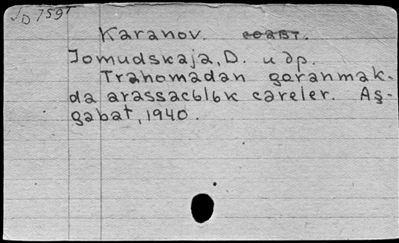 JD 759T
Karanov.
Jomudskaja, D. u dp.
Trahomadan goranmak-
da arassacьlьk careler. Aş-
gabat, 1940.